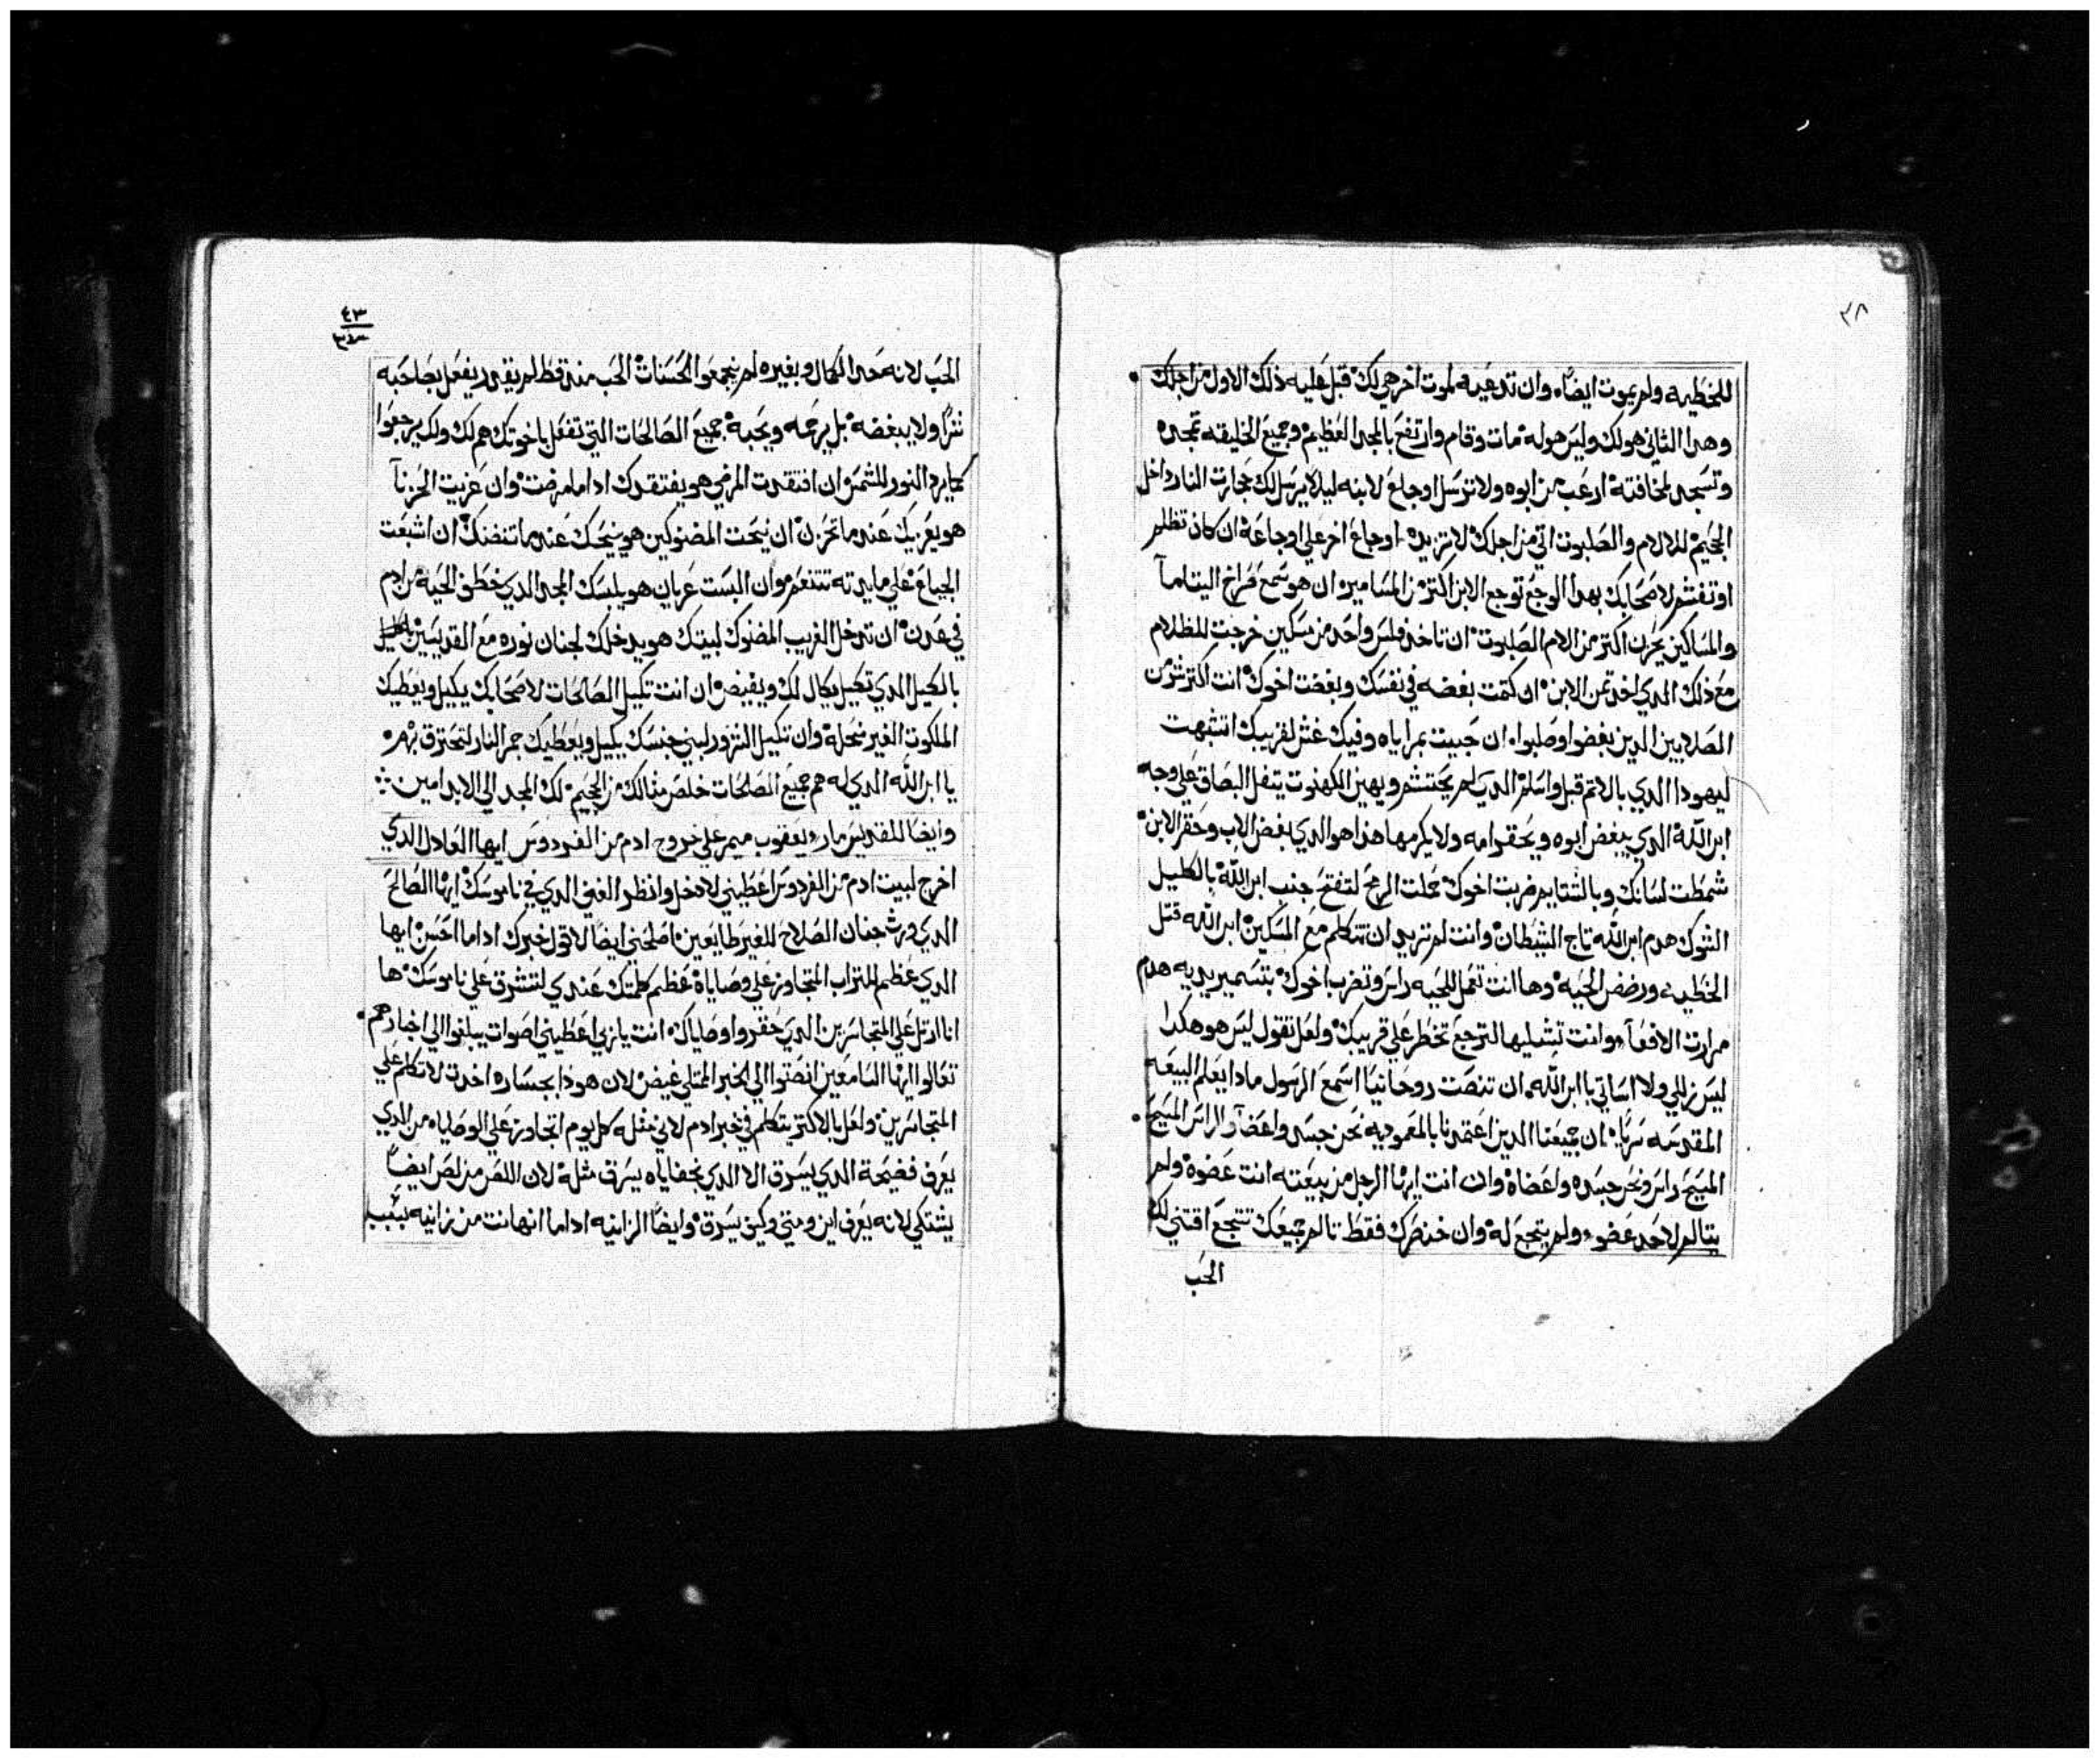 ٣٨
للخطيه ولم يموت ايضاً، وان تدعيه لموت اخر هي لك قبل عليه ذلك الاول من اجلك
وهدا الثاني هو لك وليس هو له مات وقام وارتفع بالمجد العظيم وجميع الخليقه تمجده
وتسجد لمخافته ارعب من ابوه ولا ترسل اوجاع لابنه ليلا يرسل لك حجارت النار داخل
الجحيم للالام والصلبوت اتي من اجلك لا تزيده اوجاع اخر علي اوجاعه ان كان تظلم
او تغشم لاصحابك بهدا الوجع توجع الابن اكتر من المسامير ان هو سمع صراخ اليتاما
والمساكين يحزن اكتر من الام الصلبوت ان تاخد فلس واحد من مسكين خرجت للظلام
مع ذلك الدي اخد تمن الابن ان كتمت بغضه في نفسك وبغضت اخوك انت اكتر شر من
الصلابين الدين بغضوا وصلبوا ان جبيت بمراياه وفيك غش لقريبك اتشبهت
ليهودا الدي بالاتم قبل واسلم الدي لم يحتشم ويهين الكهنوت يتفل البصاق علي وجه
ابن الله الدي يبغض ابوه ويحقر امه ولا يكرمها هذا هو الدي بغض الاب وحقر الابن
شمطت لسانك وبالشتايم ضربت اخوك عملت الرمح لتفتح جنب ابن الله بالكليل
الشوك هدم ابن الله تاج الشيطان وانت لم تريد ان تتكلم مع المسكين ابن الله قتل
الخطيه ورضض الحيه وها انت تعمل للحيه راس وتضرب اخوك بتسمير يديه هدم
مرارت الافعآ وانت تشليها لترجع تخطر علي قريبك ولعل تقول ليس هو هكدا
ليس زللي ولا اساتي يا ابن الله ان تنصت روحانياً اسمع الرسول مادا يعلم البيعه
المقدسه سراً ان جميعنا الدين اعتمدنا بالمعموديه نحن جسد واعضآ والراس المسيح
المسيح راس ونحن جسده واعضاه وان انت ايها الرجل من بيعته انت عضوه ولم
يتالم لاحد عضو ولم يتجع له وان خنصرك فقط تالم جميعك تتجع اقتني لك
الحب
٤٣
الحب لانه محل الكمال وبغيره لم يجمعوا الحسنات الحب منه قط لم يقدر يفعل بصاحبه
شراً ولا يبغضه بل يرحمه ويحبه جميع الصالحات التي تفعل باخوتك هم لك ولك يرجعوا
كما يرد النور للشمس ان افتقدت المرضي هو يفتقدك ادا ما مرضت وان عزيت الحزنآ
هو يعزيك عندما تحزن ان نيحت المضنوكين هو ينيحك عندما تنضنك ان اشبعت
الجياع علي مايدته تتنعم وان البست عريان هو يلبسك المجد الدي خطف الحيه من ادم
في عدن ان تدخل الغريب المضنوك لبيتك هو يدخلك لجنان نوره مع القديسين
بالكيل الدي تكيل يكال لك ويفيض ان انت تكيل الصالحات لاصحابك يكيل ويعطيك
الملكوت الغير منحله وان تكيل الشرور لبني جنسك يكيل ويعطيك جمر النار لتحترق بهم
يا ابن الله الدي له هم جميع الصالحات خلص مثالك من الجحيم لك المجد الي الابد امين
وايضا للقديس مار يعقوب ميمر علي خروج ادم من الفردوس ايها العادل الدي
اخرج لبيت ادم من الفردوس اعطيني لادخل وانظر الغني الدي في ناموسك ايها الصالح
الدي ورث جنان الصلاح للغير طايعين اصلحني ايضاً لاقول خبرك ادا ما احسن ايها
الدي عظم للتراب المتجاوز علي وصاياه عظم كلمتك عندي لتشرق علي ناموسك ها
انا ارتل علي المتجاسرين الدي حقروا وصاياك انت يا ربي اعطيني اصوات يبلغوا الي اخبارهم
تعالوا ايها السامعين انصتوا الي الخبر الممتلي غيض لان هودا بجساره اخدت لاتكلم علي
المتجاسرين ولعل بالاكتر يتكلم في خبر ادم لاني مثله كل يوم اتجاوز علي الوصايا من الدي
يعرف فضيحة الدي يسرق الا الدي بخفاياه يسرق مثله لان اللص من لص ايضاً
يشتكي لانه يعرف اين ومتي وكيف يسرق وايضاً الزانيه ادا ما انهانت من زانيه